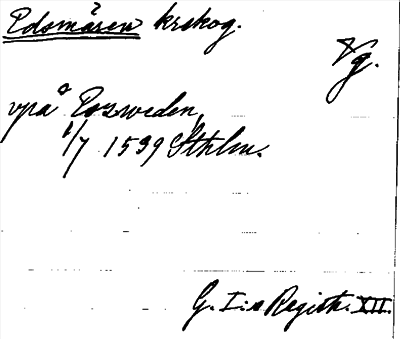 Edsmåren krskog.
Vg.
vpå Edzweden,
6/7 1539 Sthlm.
G. I:s Registr. XII.